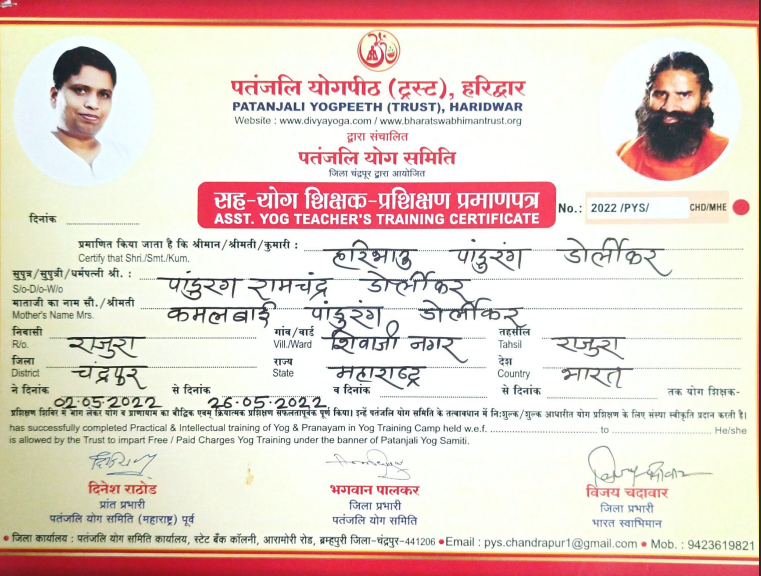 पतंजलि योगपीठ (ट्रस्ट), हरिद्वार
PATANJALI YOGPEETH (TRUST), HARIDWAR
Website : www.divyayoga.com / www.bharatswabhimantrust.org
द्वारा संचालित
पतंजलि योग समिति
जिला चंद्रपूर द्वारा आयोजित
सह-योग शिक्षक-प्रशिक्षण प्रमाणपत्र
ASST. YOG TEACHER'S TRAINING CERTIFICATE
No.: 2022 /PYS/ CHD/MHE
दिनांक
प्रमाणित किया जाता है कि श्रीमान/श्रीमती/कुमारी : हरिभाऊ पांडुरंग डोर्लीकर
Certify that Shri./Smt./Kum.
सुपुत्र/सुपुत्री/धर्मपत्नी श्री. : पांडुरंग रामचंद्र डोर्लीकर
S/o-D/o-W/o
माताजी का नाम सौ./श्रीमती कमलबाई पांडुरंग डोर्लीकर
Mother's Name Mrs.
निवासी राजुरा गांव/वार्ड शिवाजी नगर तहसील राजुरा
R/o. Vill./Ward Tahsil
जिला चंद्रपुर राज्य महाराष्ट्र देश भारत
District State Country
ने दिनांक 02.05.2022 से दिनांक 26.05.2022 व दिनांक से दिनांक तक योग शिक्षक-
प्रशिक्षण शिविर में भाग लेकर योग व प्राणायाम का बौद्धिक एवम् क्रियात्मक प्रशिक्षण सफलतापूर्वक पूर्ण किया। इन्हें पतंजलि योग समिति के तत्वावधान में नि:शुल्क/शुल्क आधारीत योग प्रशिक्षण के लिए संस्था स्वीकृति प्रदान करती है।
has successfully completed Practical & Intellectual training of Yog & Pranayam in Yog Training Camp held w.e.f. to He/she
is allowed by the Trust to impart Free / Paid Charges Yog Training under the banner of Patanjali Yog Samiti.
दिनेश राठोड भगवान पालकर विजय चंदावार
प्रांत प्रभारी जिला प्रभारी जिला प्रभारी
पतंजलि योग समिति (महाराष्ट्र) पूर्व पतंजलि योग समिति भारत स्वाभिमान
• जिला कार्यालय : पतंजलि योग समिति कार्यालय, स्टेट बँक कॉलनी, आरामोरी रोड, ब्रम्हपुरी जिला-चंद्रपूर-441206 • Email : pys.chandrapur1@gmail.com • Mob. : 9423619821